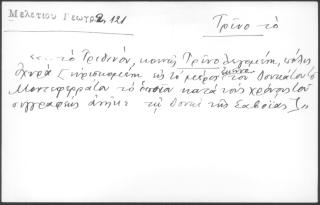 Μελετίου Γεωγρ. 2, 121
Τρῖνο τό
«... τό Τριδινόν, κοινῶς Τρῖνο λεγομένη, πόλις
ὀχυρά εὑρισκομένη εἰς τό μέρος ἐκεῖνο τοῦ Δουκάτου τοῦ
Μονφερράτου τό ὁποῖον κατά τούς χρόνους τοῦ
συγγραφέως ἀνῆκε τῷ Δουκί τῆς Σαβοΐας